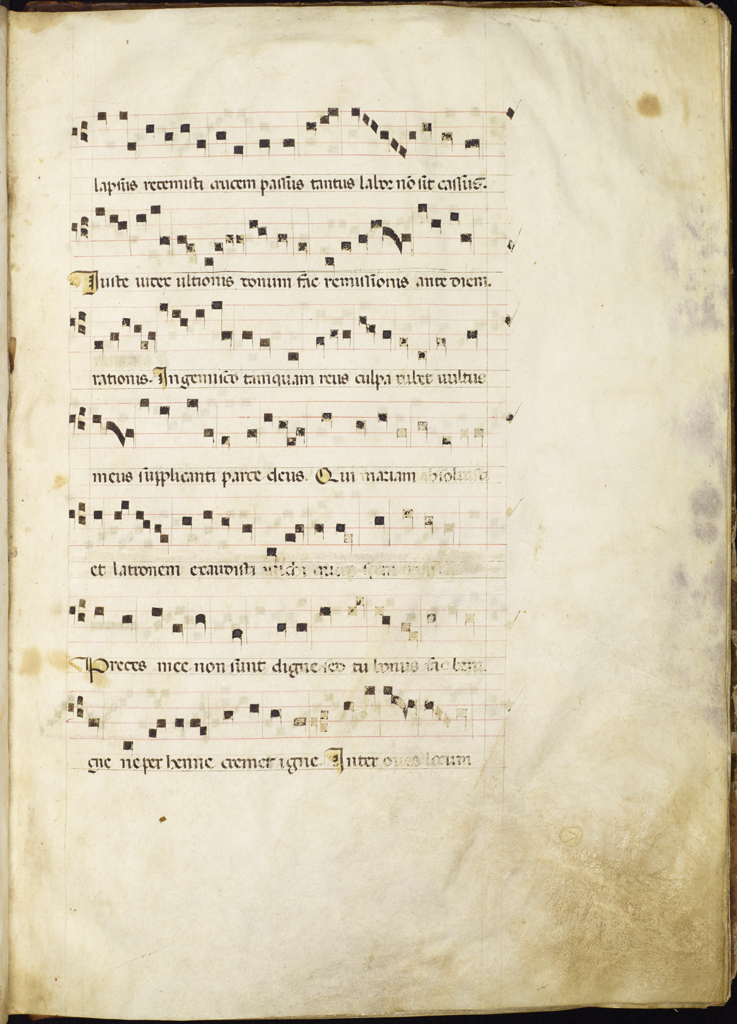 lapsus redemisti crucem passus tantus labor nō sit cassus.
Juste iudex ultionis donum fac remissionis ante diem.
rationis. Ingemisco tanquam reus culpa rubet uultus
meus supplicanti parce deus. Qui mariam absoluisti
et latronem exaudisti michi quoque spem
Preces mee non sunt digne sed tu bonus fac
gne ne per henne cremer igne. Inter oues locum